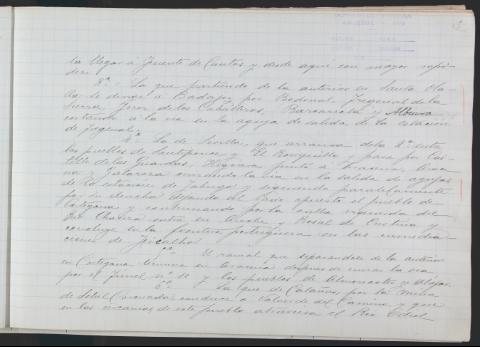 la llegar a Fuente de Cantos y desde aquí con mayor rapi-
dez.
3ª La que partiendo de la anterior en Santa Ola-
lla, se dirige a Badajoz por Bodonal, Fregenal de la
Sierra, Jerez de los Caballeros, Barcarrota y Albuera
cortando a la via en la aguja de salida de la estación
de Jabugo.
4ª La de Sevilla, que arranca de la 2ª entre
los pueblos de Guillena y El Ronquillo y pasa por Cas-
tillo de las Guardas, Higuera junto a Aracena, Arace-
na y Galaroza cruzando la via en la salida de agujas
de la estacion de Jabugo y siguiendo paralelamente
por su derecha dejando al paso el pueblo de
Cortegana y continuando por la orilla izquierda del
Rio Chanza entra en Aroche y Rosal de Cristina y
concluye en la frontera portuguesa en las inmedia-
ciones de
5ª El ramal que separandose de la anterior
en Cortegana termina en despues de cruzar la via
por el Tunel nº 10 y los pueblos de Almonaster
6ª La que de Calañas, por la Mina
de Sotiel Coronada conduce a Valverde del Camino y que
en las cercanias de este pueblo atraviesa el Rio Odiel